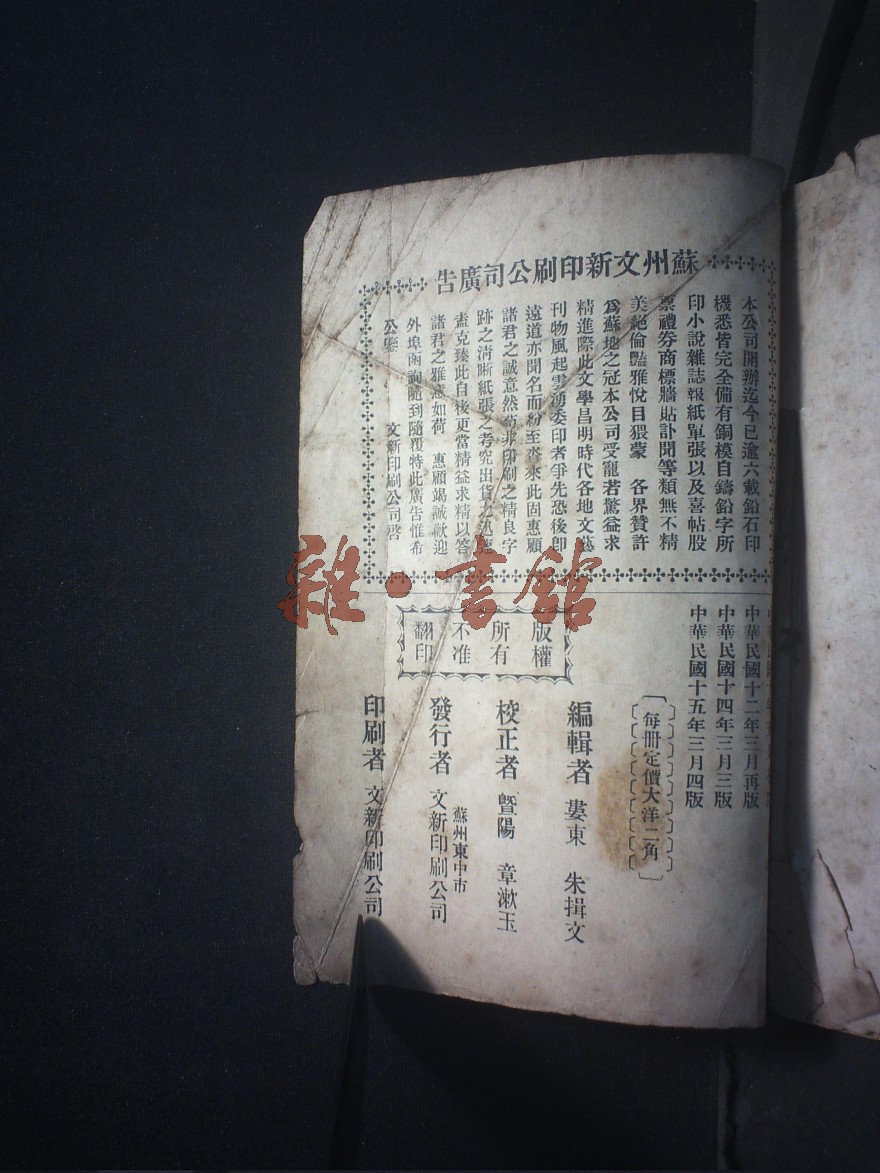 蘇州文新印刷公司廣告
本公司開辦迄今已逾六載鉛石印
機悉皆完全備有銅模自鑄鉛字所
印小說雜誌報紙單張以及喜帖股
票禮券商標牆貼訃聞等類無不精
美絕倫豔雅悅目猥蒙 各界贊許
爲蘇地之冠本公司受寵若驚益求
精進際此文學昌明時代各地文藝
刊物風起雲湧委印者爭先恐後卽
遠道亦聞名而紛至沓來此固惠顧
諸君之誠意然苟非印刷之精良字
跡之清晰紙張之考究出貨之迅速
盍克臻此自後更當精益求精以答
諸君之雅意如荷 惠顧竭誠歡迎
外埠函詢隨到隨覆特此廣告惟希
公鑒 文新印刷公司啓
中華民國十二年三月再版
中華民國十四年三月三版
中華民國十五年三月四版
每冊定價大洋二角
版權
所有
不准
翻印
編輯者 婁東 朱揖文
校正者 暨陽 章漱玉
發行者 蘇州東中市 文新印刷公司
印刷者 文新印刷公司
雜·書館